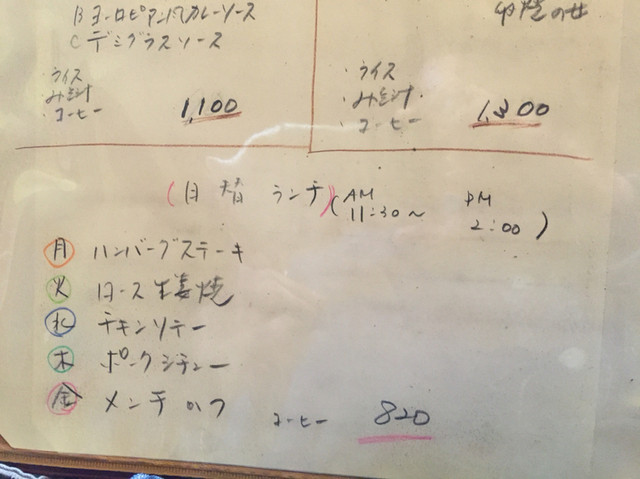 Bヨーロピアン風カレーソース
Cデミグラスソース
・ライス
みそ汁
・コーヒー
1,100
・ライス
・みそ汁・
・コーヒー
1,300
(日替ランチ)(AM 11:30~ PM 2:00)
月 ハンバーグステーキ
火 ロース生姜焼
水 チキンソテー
木 ポークシチュー
金 メンチかつ コーヒー 820